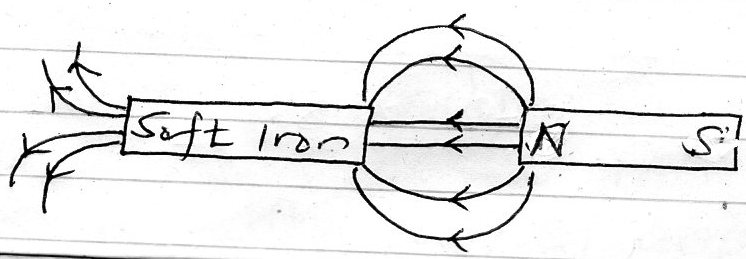 Soft Iron N S